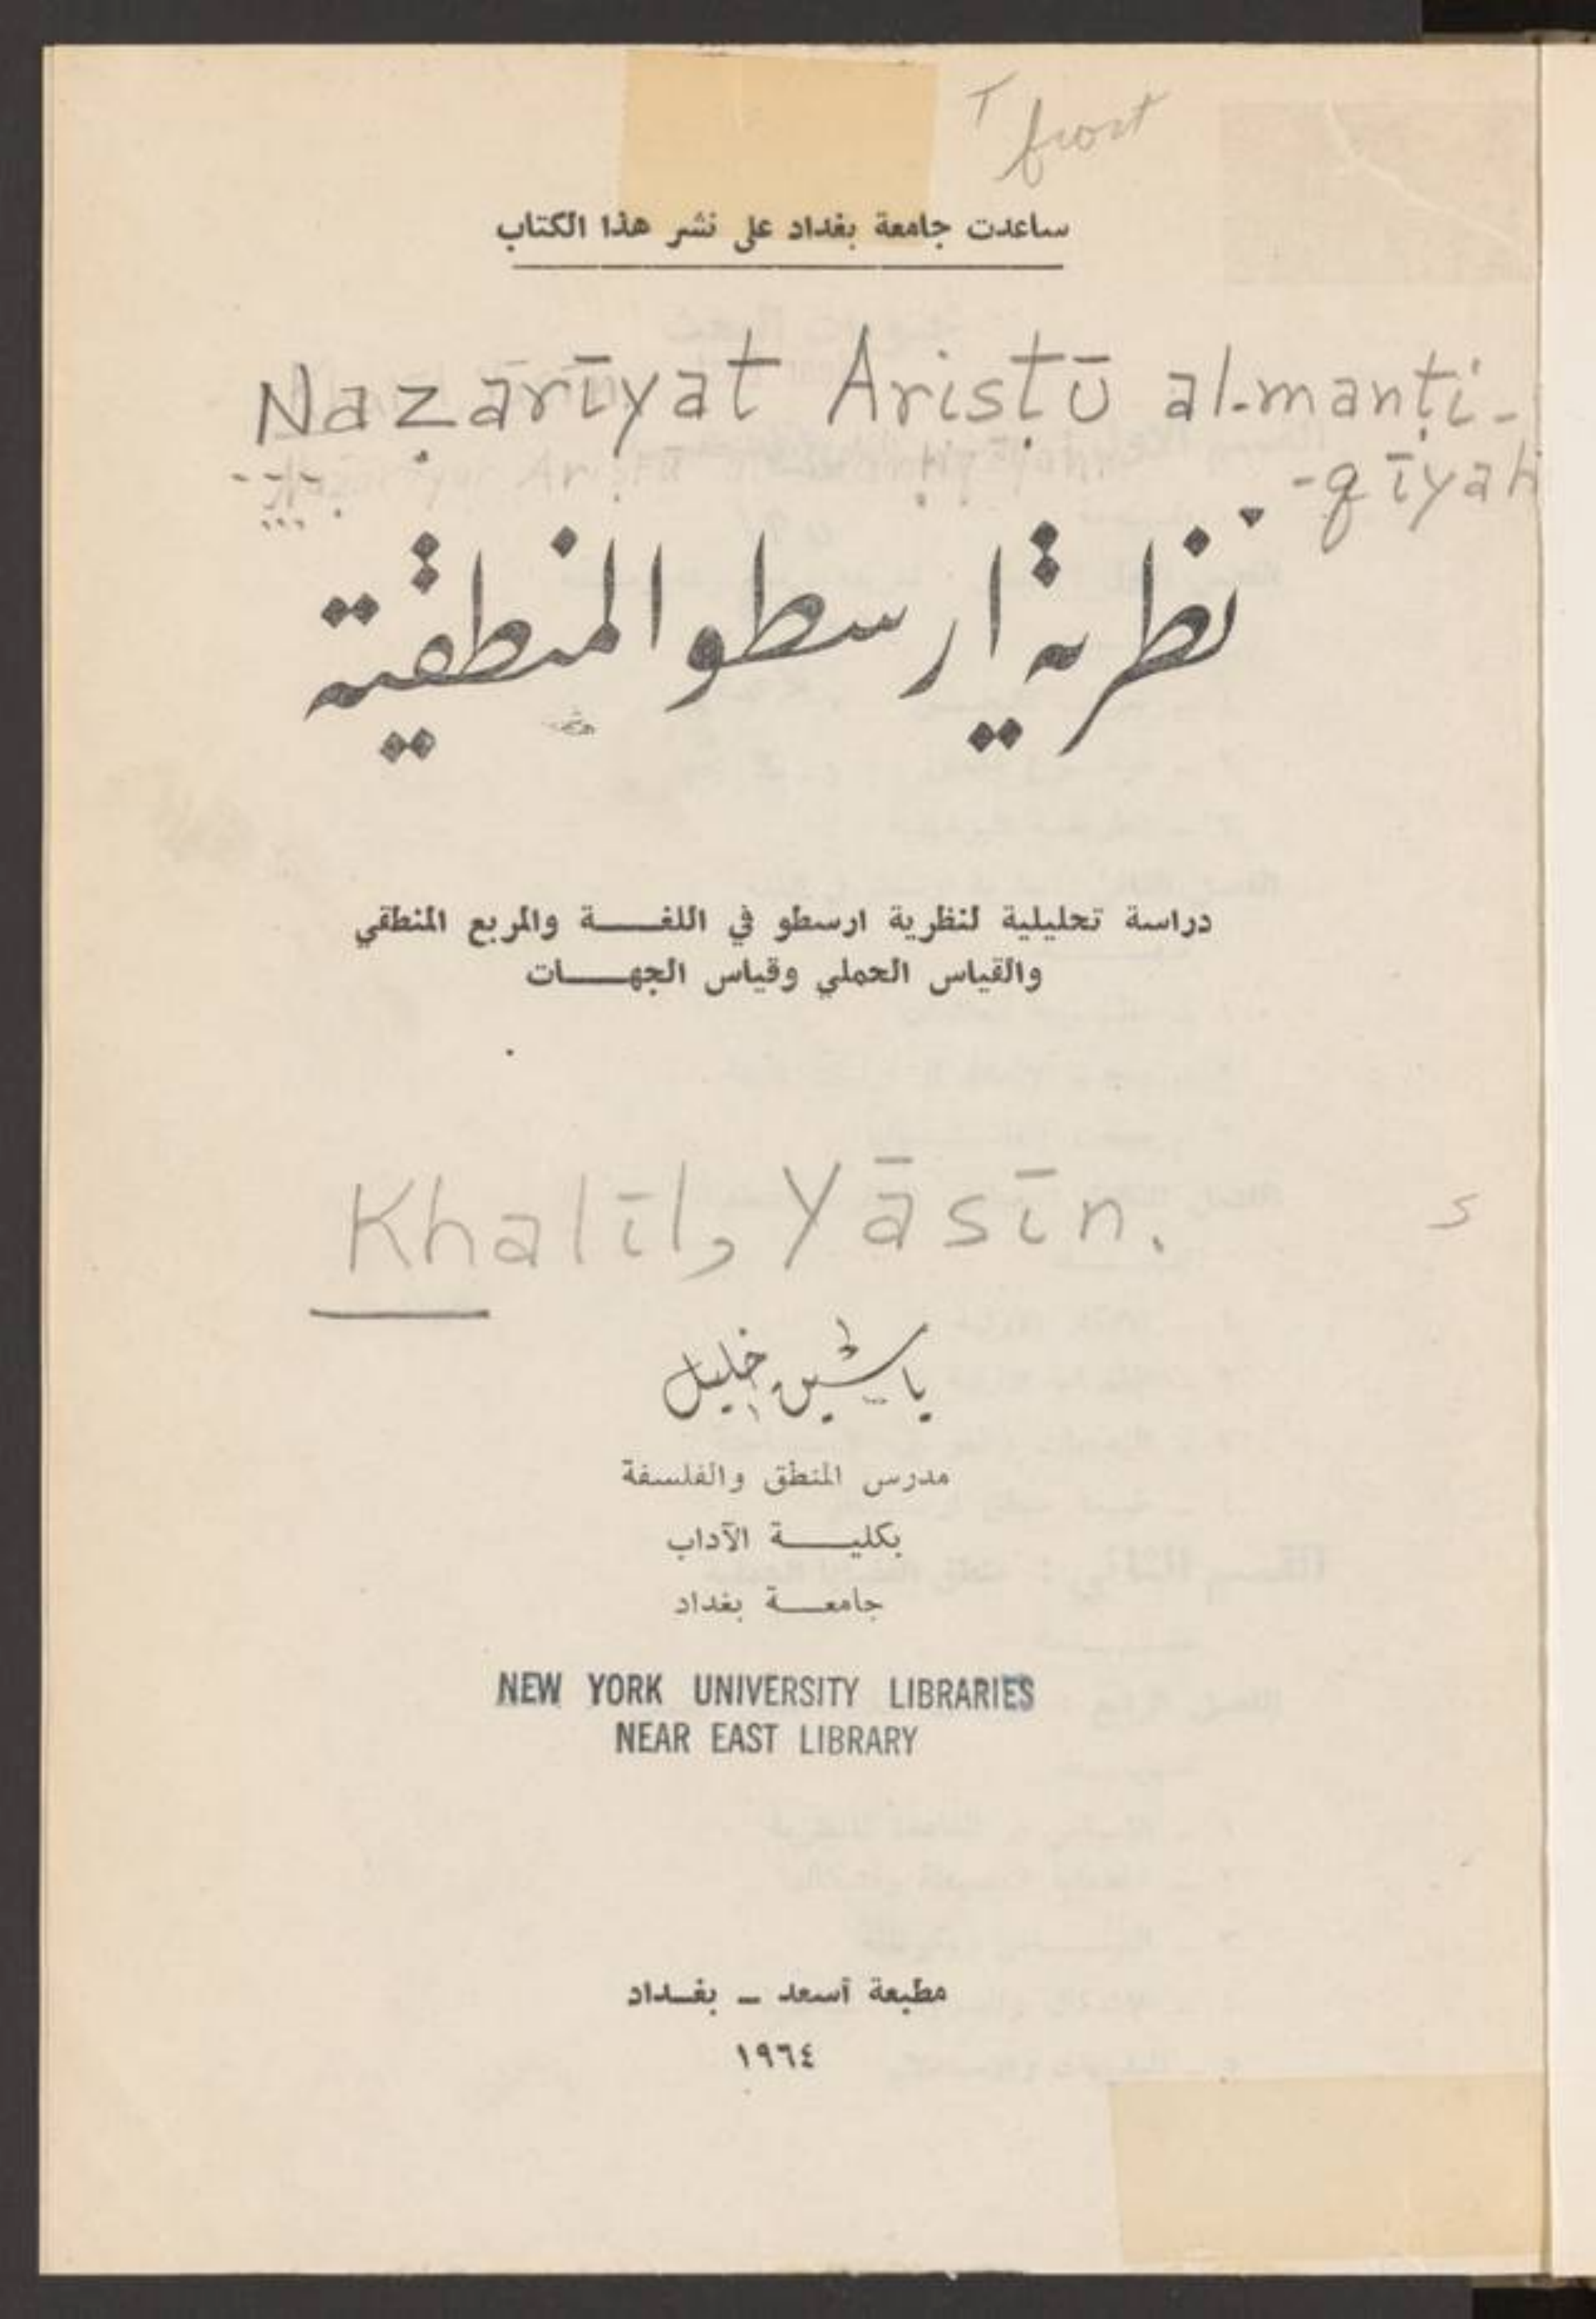 T front
ساعدت جامعة بغداد على نشر هذا الكتاب
Naẓarīyat Arisṭū al-manṭi-
-qīyah
نظرية ارسطو المنطقية
دراسة تحليلية لنظرية ارسطو في اللغــــة والمربع المنطقي
والقياس الحملي وقياس الجهــــات
Khalīl, Yāsīn.
s
ياسين خليل
مدرس المنطق والفلسفة
بكليــــة الآداب
جامعــــة بغداد
NEW YORK UNIVERSITY LIBRARIES
NEAR EAST LIBRARY
مطبعة أسعد – بغــداد
١٩٦٤